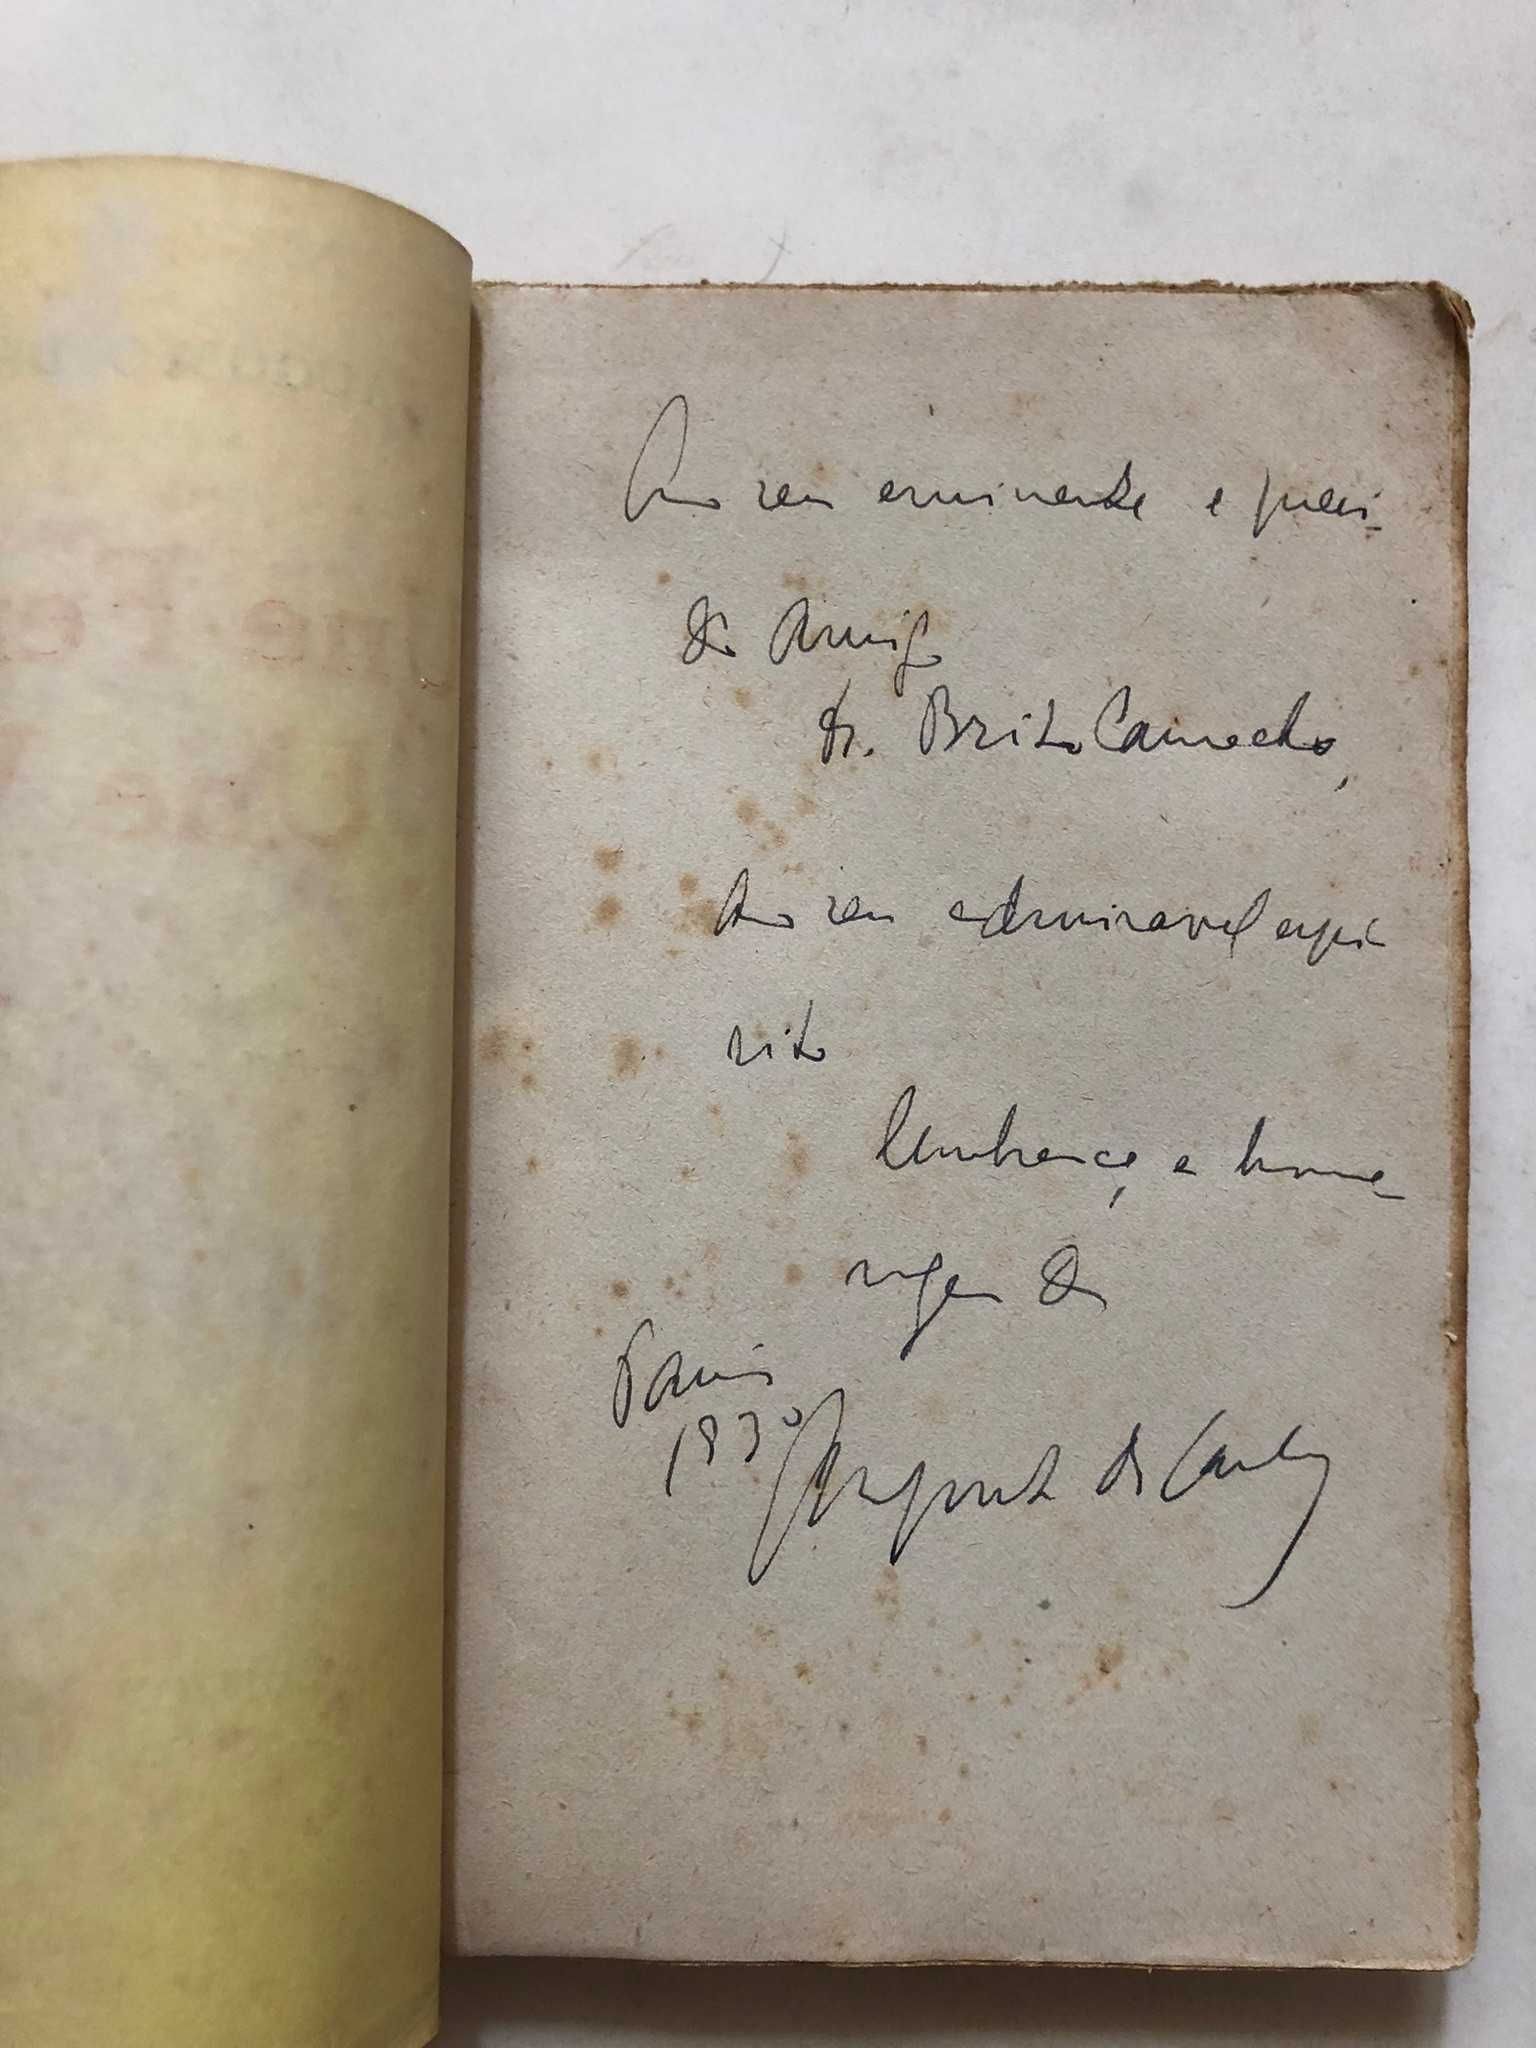 Ao seu eminente e queri-
do Amigo
dr. Brito Camacho,
Ao seu admiravel espi
rito
lembrança e home-
nagem de
Paris
1930
de